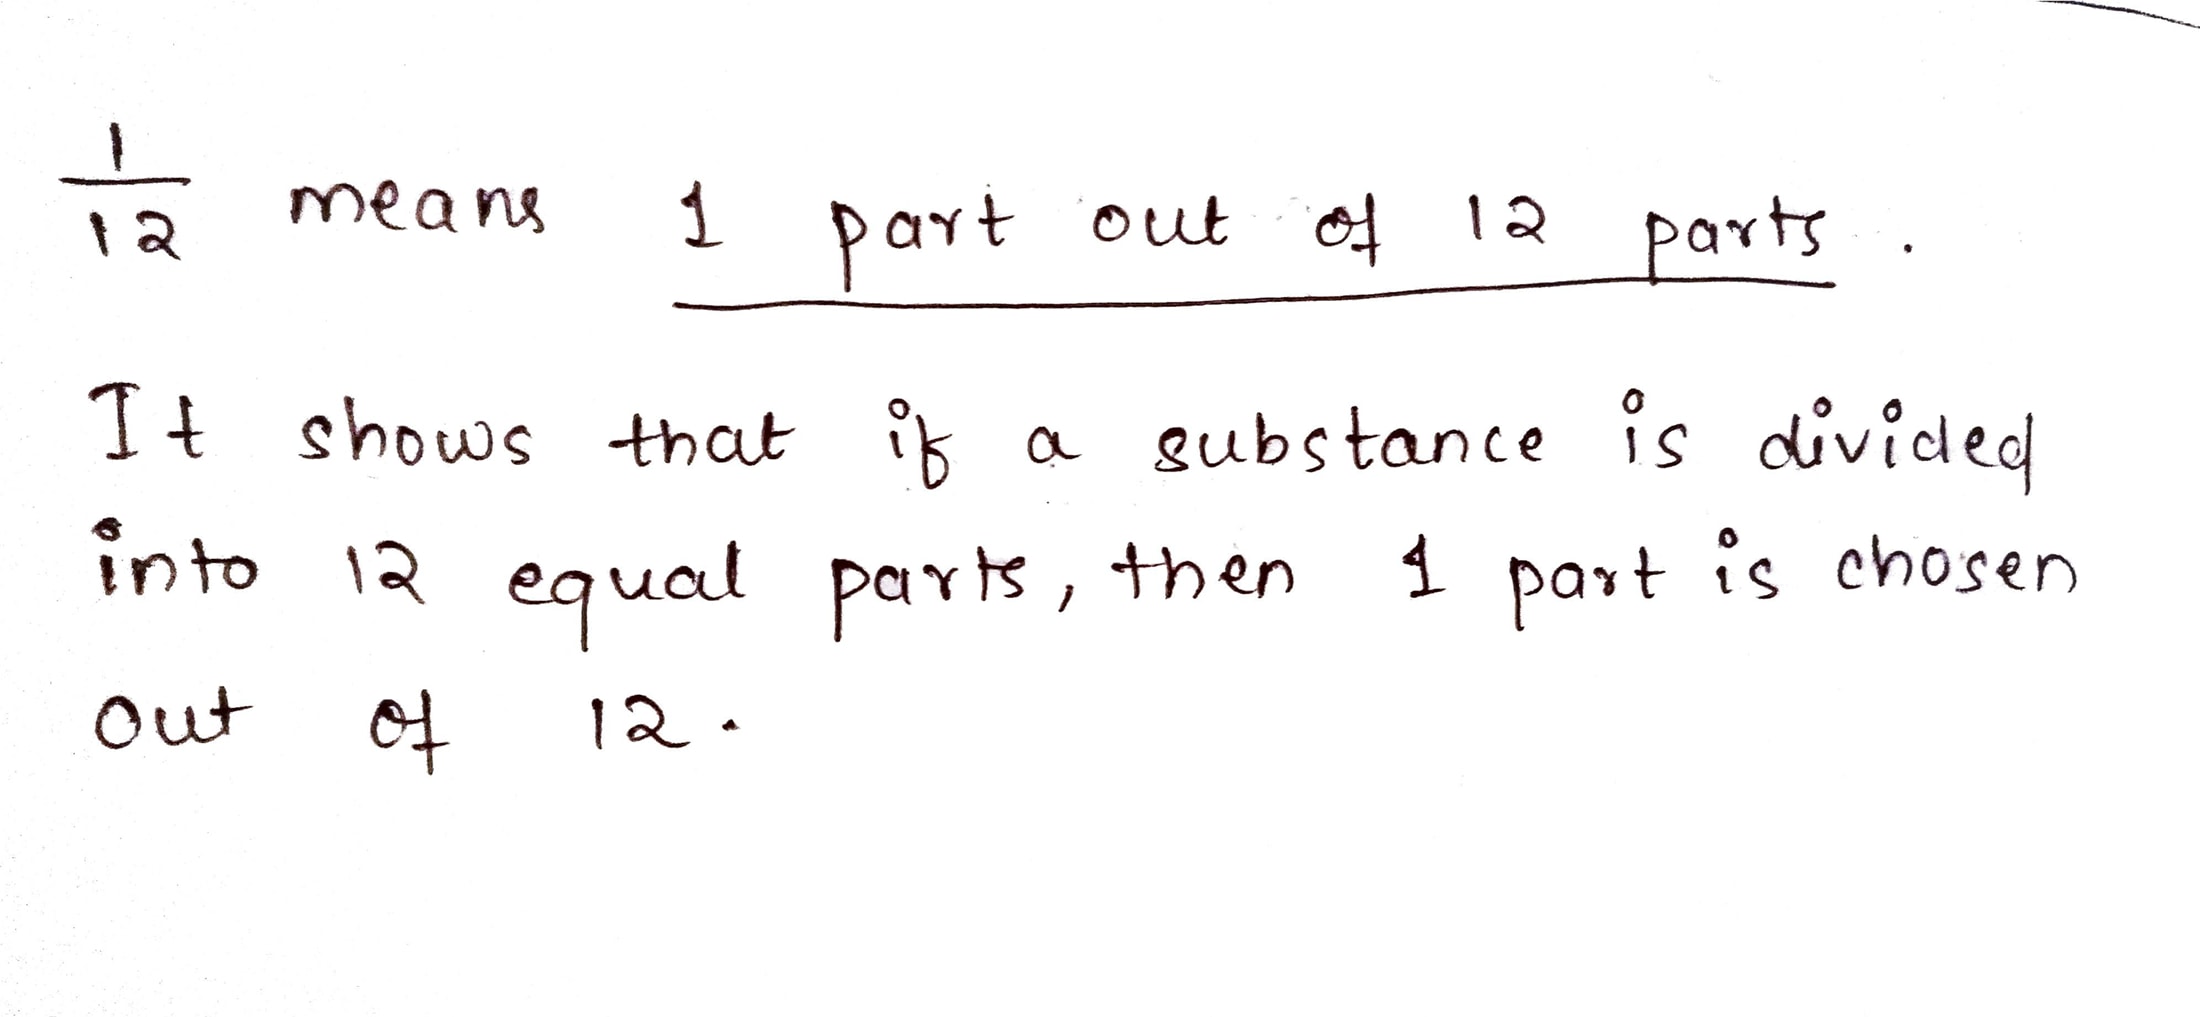 1/12 means 1 part out of 12 parts.
It shows that if a substance is divided
into 12 equal parts, then 1 part is chosen
out of 12.